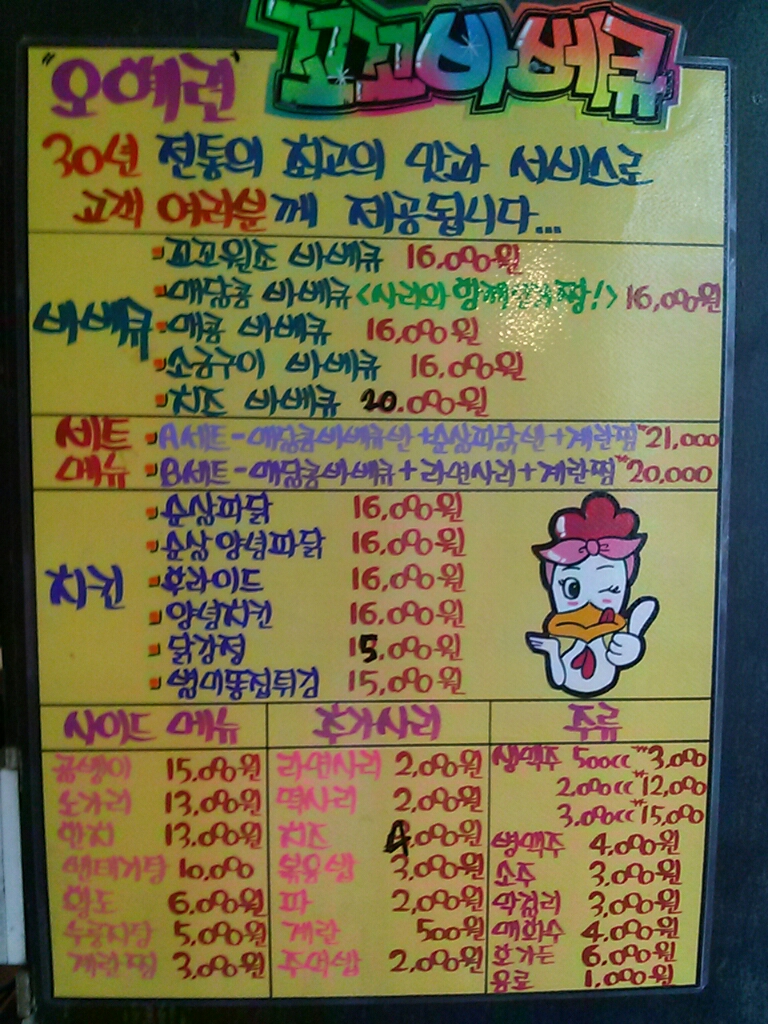 꼬꼬바베큐
"오예권"
30년 전통의 최고의 맛과 서비스로
고객 여러분께 제공됩니다...
바베큐
꼬꼬원조 바베큐 16,000원
매달콩 바베큐 <사리와 함께 짱!> 16,000원
매콩 바베큐 16,000원
소금구이 바베큐 16,000원
치즈 바베큐 20.000원
세트 메뉴
A세트-매달콤바베큐반+순살파닭반+계란찜 21,000
B세트-매달콤바베큐+라면사리+계란찜 20,000
치킨
순살파닭 16,000원
순살양념파닭 16,000원
후라이드 16,000원
양념치킨 16,000원
닭강정 15,000원
쌤미똥집튀김 15,000원
사이드 메뉴
골뱅이 15,000원
노가리 13,000원
한치 13,000원
생태가탕 10,000
황도 6,000원
누룽지탕 5,000원
계란찜 3,000원
추가사리
라면사리 2,000원
떡사리 2,000원
치즈 4,000원
볶음밥 3,000원
파 2,000원
계란 500원
주먹밥 2,000원
주류
생맥주 500cc 3,000
2,000cc 12,000
3,000cc 15,000
병맥주 4,000원
소주 3,000원
막걸리 3,000원
매화수 4,000원
호가든 6,000원
음료 1,000원